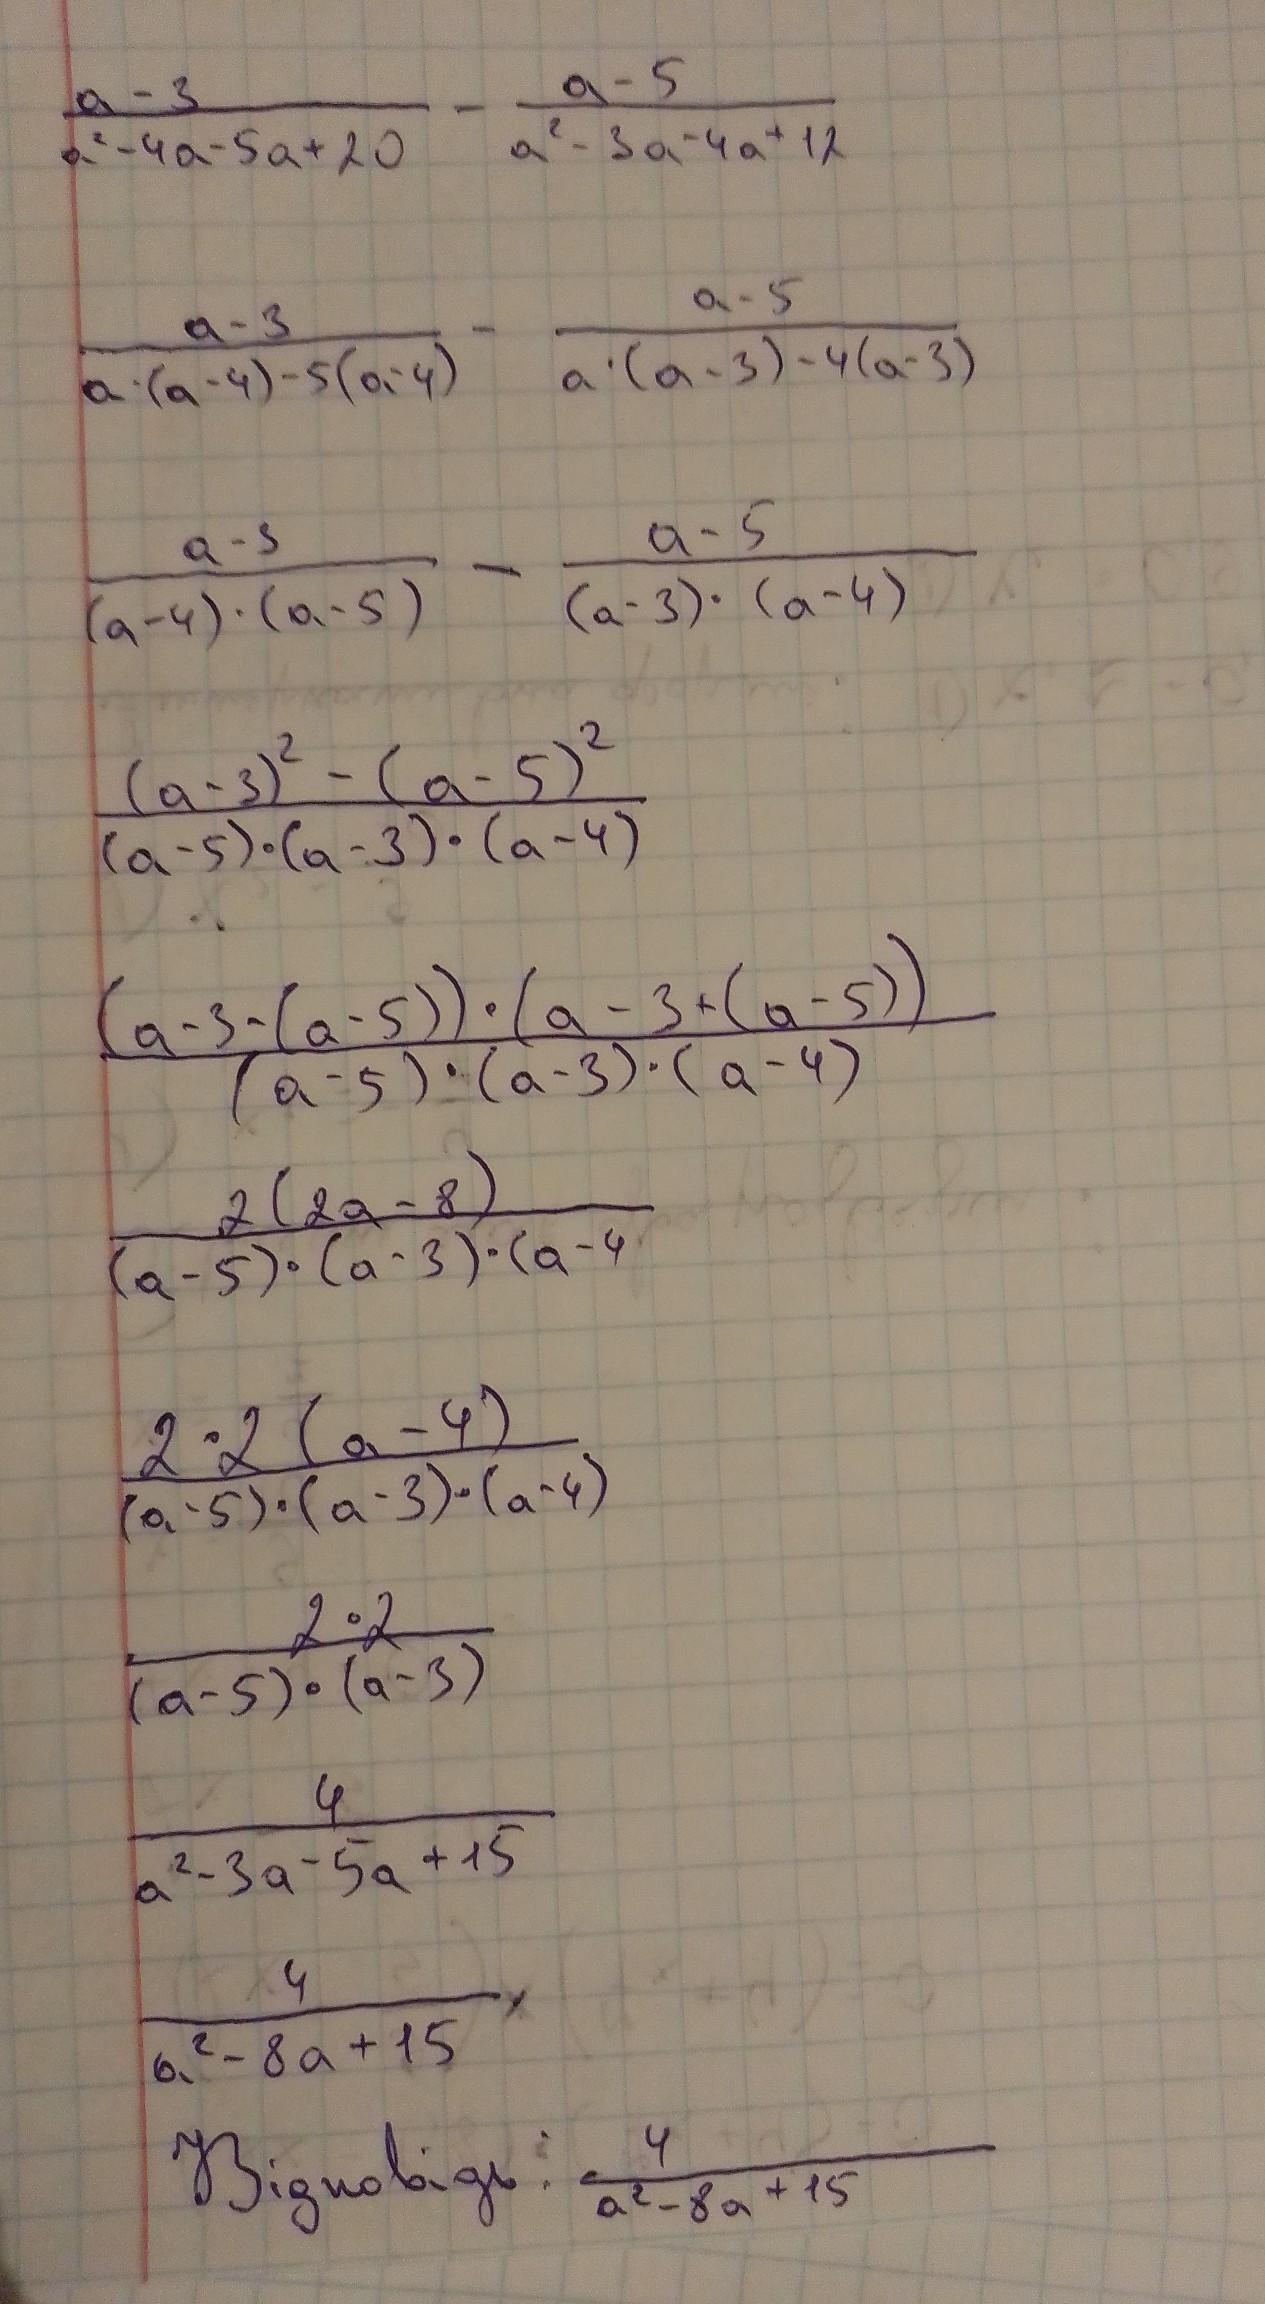 a-3 / a²-4a-5a+20 - a-5 / a²-3a-4a+12
a-3 / a·(a-4)-5(a-4) - a-5 / a·(a-3)-4(a-3)
a-3 / (a-4)·(a-5) - a-5 / (a-3)·(a-4)
(a-3)²-(a-5)² / (a-5)·(a-3)·(a-4)
(a-3-(a-5))·(a-3+(a-5)) / (a-5)·(a-3)·(a-4)
2(2a-8) / (a-5)·(a-3)·(a-4
2·2(a-4) / (a-5)·(a-3)·(a-4)
2·2 / (a-5)·(a-3)
4 / a²-3a-5a+15
4 / a²-8a+15
Відповідь: 4 / a²-8a+15